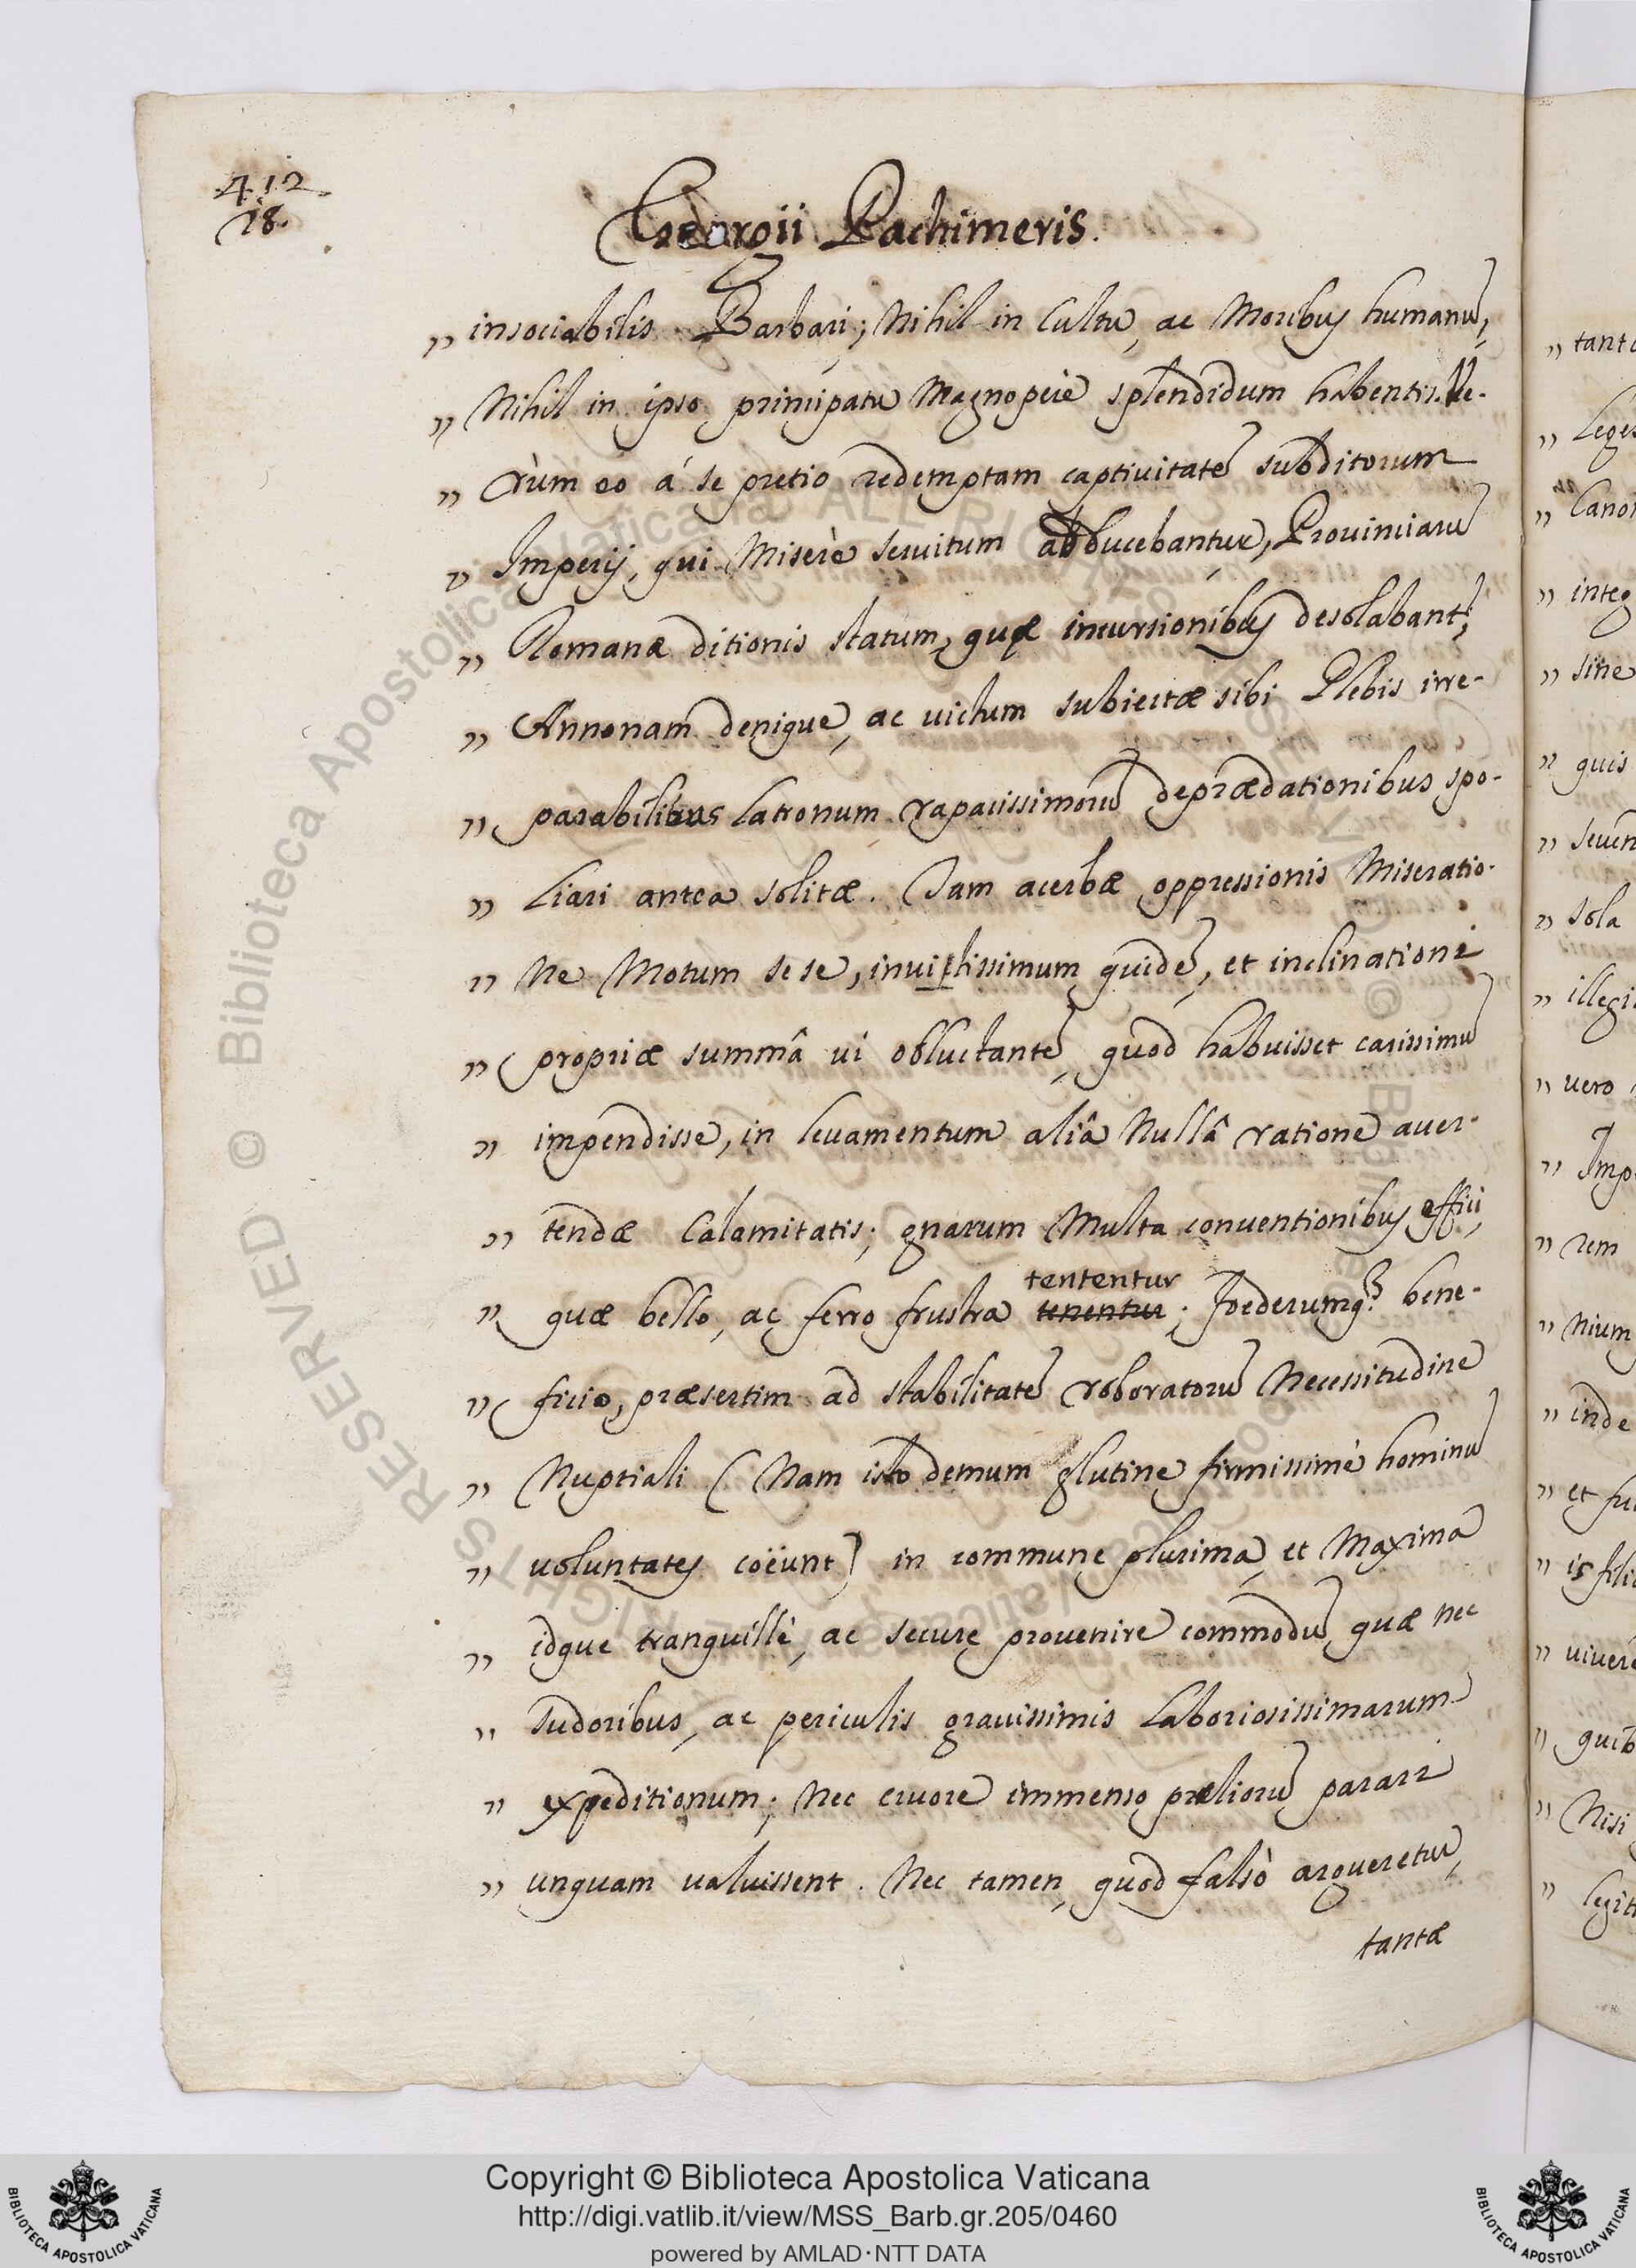 412
18.
Georgii Pachimeris.
„ insociabilis Barbari; Nihil in Cultu, ac Moribus humanũ,
„ Nihil in ipso principatu Magnopere splendidum habentis. Ve-
„ rùm eo á se pretio redemptam captivitatẽ subditorum
„ Imperij, qui Miserè servitum abducebantur, Provinciarũ
„ Romanæ ditionis statum, quæ incursionibus desolabant,
„ Annonam denique, ac victum subiectæ sibi Plebis irre-
„ parabilibus Latronum rapacissimorũ deprædationibus spo-
„ Liari antea solitæ. Tam acerbæ oppressionis Miseratio-
„ Ne Motum se se, invitissimum quidẽ, et inclinationi
„ propriæ summâ vi obluctantẽ, quod habuisset carissimũ
„ impendisse, in levamentum aliâ Nullâ ratione aver-
„ tendæ Calamitatis; gnarum Multa conventionibus effici,
tententur
„ quæ bello, ac ferro frustra tenentur; Foederumq3 bene-
„ ficio, præsertim ad stabilitatẽ roboratorũ Necessitudine
„ Nuptiali (Nam isto demum glutine firmissimè hominũ
„ voluntates coëunt) in commune plurima, et Maxima
„ idque tranquillè, ac secure provenire commodũ, quæ nec
„ sudoribus, ac periculis gravissimis Laboriosissimarum
„ expeditionum; Nec cruore immenso præliorũ parari
„ unquam valuissent. Nec tamen, quod falsò argueretur,
tantæ
„ Leges
„ integ
„ sine
„ quis
„ sola
„ vero
„ rem
„ Nium
„ inde
„ Nisi
Copyright © Biblioteca Apostolica Vaticana
http://digi.vatlib.it/view/MSS_Barb.gr.205/0460
powered by AMLAD·NTT DATA
BIBLIOTECA APOSTOLICA VATICANA
BIBLIOTECA APOSTOLICA VATICANA